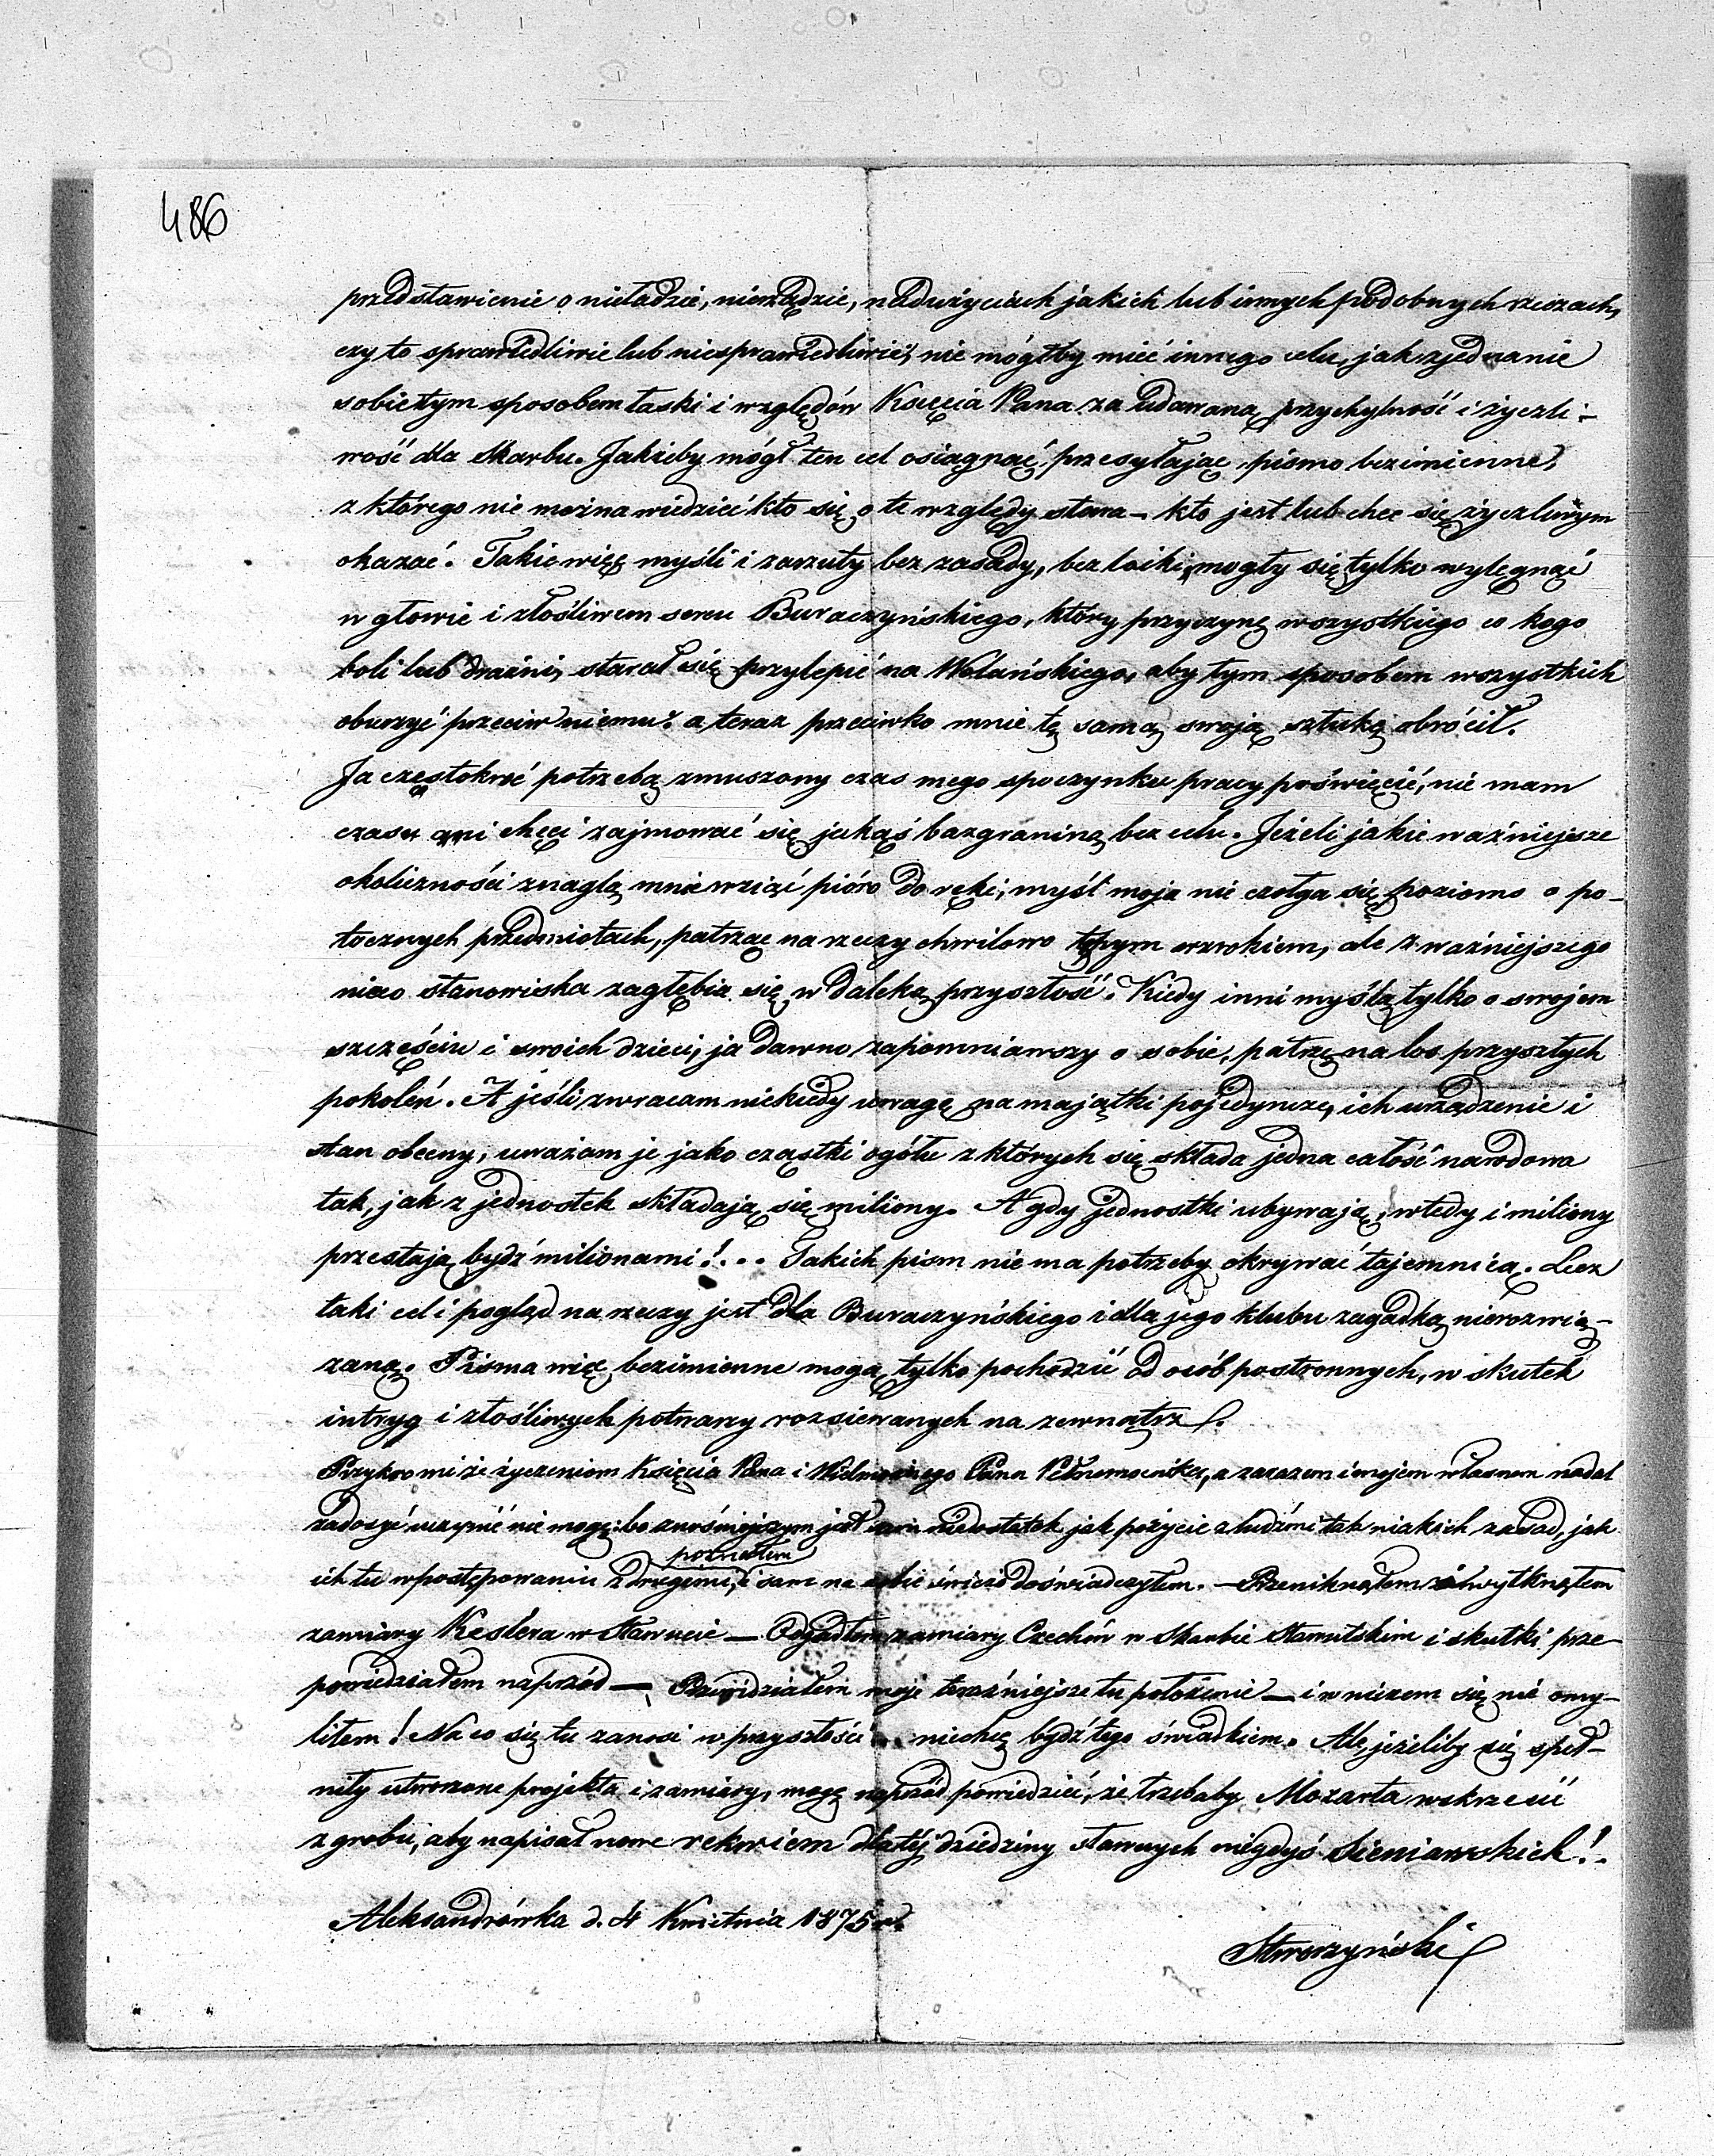 486
przedstawienie o nieładzie, nierządzie, nadużyciach jakich lub innych podobnych rzeczach,
czy to sprawiedliwie lub niesprawiedliwie, nie mógłby mieć innego celu, jak zjednanie
sobie tym sposobem łaski i względów Księcia Pana za udawaną przychylność i życzli-
wość dla Skarbu. Jakżeby mógł ten cel osiągnąć, przesyłając pismo bezimienne,
z którego nie można wiedzieć kto się o te względy stara – kto jest lub chce się życzliwym
okazać. Takie więc myśli i zarzuty bez zasady, bez loiki, mogły się tylko wylęgnąć
w głowie i złośliwem sercu Buraczyńskiego, który przyczynę wszystkiego co kogo
boli lub drażni, starał się przylepić na Wolańskiego, aby tym sposobem wszystkich
oburzyć przeciw niemu; a teraz przeciwko mnie tę samą swoją sztukę obrócił.
Ja częstokroć potrzebą zmuszony czas mego spoczynku pracy poświęcić, nie mam
czasu ani chęci zajmować się jakąś bazgraniną bez celu. Jeżeli jakie ważniejsze
okoliczności znaglą mnie wziąć pióro do ręki, myśl moja nie czołga się poziomo o po-
tocznych przedmiotach, patrząc na rzeczy chwilowo tępym wzrokiem, ale z ważniejszego
nieco stanowiska zagłębia się w daleką przyszłość. Kiedy inni myślą tylko o swojem
szczęściu i swoich dzieci, ja dawno zapomniawszy o sobie, patrzę na los przyszłych
pokoleń. A jeśli zwracam niekiedy uwagę na majątki pojedyncze, ich urządzenie i
stan obecny, uważam je jako cząstki ogółu z których się składa jedna całość narodowa
tak, jak z jednostek składają się miliony. A gdy jednostki ubywają, wtedy i miliony
przestają bydź milionami!... Takich pism nie ma potrzeby okrywać tajemnicą. Lecz
taki cel i pogląd na rzeczy jest dla Buraczyńskiego i dla jego klubu zagadką nierozwią-
zaną. Pisma więc bezimienne mogą tylko pochodzić od osób postronnych, w skutek
intryg i złośliwych potwarzy rozsiewanych na zewnątrz.
Przykro mi że życzeniom Księcia Pana i Wielmożnego Pana Pełnomocnika, a zarazem i mojem własnem nadal
zadosyć uczynić nie mogę: bo znośniejszym jest niedostatek jak pożycie z ludźmi tak niskich zasad, jak
poznałem
ich tu w postępowaniu z drugimi, i sam na sobie świeżo doświadczyłem. – Przeniknąłem i wytknąłem
zamiary Keslera w Sławucie – Odgadłem zamiary Czechów w Skarbie Sławutskim i skutki prze-
powiedziałem naprzód – Przewidziałem moje teraźniejsze tu położenie – i w niczem się nie omy-
liłem! Na co się tu zanosi w przyszłości niechcę bydź tego świadkiem. Ale, jeżeliby się speł-
niły utworzone projekta i zamiary, mogę naprzód powiedzieć, że trzebaby Mozarta wskrzesić
z grobu, aby napisał nowe rekwiem dla téj dziedziny sławnych niegdyś Sieniawskich!.
Aleksandrówka d. 4 Kwietnia 1875 r.
Stworzyński